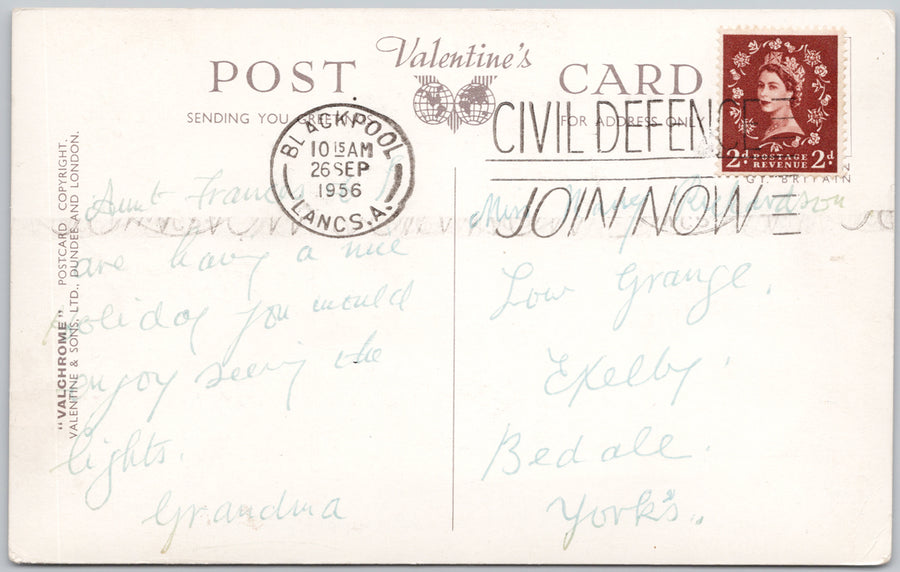 POST Valentine's CARD
SENDING YOU GREETINGS
FOR ADDRESS ONLY
BLACKPOOL
10 15 AM
26 SEP
1956
LANCS. A.
CIVIL DEFENCE
JOIN NOW
2d POSTAGE REVENUE 2d
GT. BRITAIN
"VALCHROME" POSTCARD COPYRIGHT,
VALENTINE & SONS, LTD., DUNDEE AND LONDON.
Aunt Frances & I
are having a nice
holiday you would
enjoy seeing the
lights.
Grandma
Miss Richardson
Low Grange,
Exelby.
Bedale.
York's.